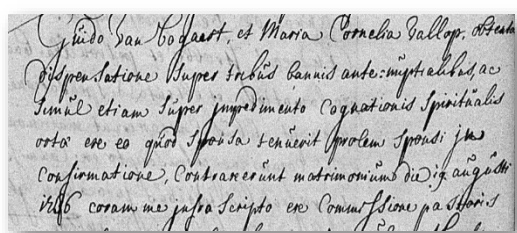 Guido Van Bogaert, et Maria Cornelia Vallop, obtenta
dispensatione super tribus bannis ante=nuptialibus, ac
simul etiam super impedimento cognationis spiritualis
orto exe eo quod sponsa tenuerit prolem sponsi in
confirmatione, Contraxerunt matrimonium die 19 augusti
1786 coram me infra scripto exe Commissione pastoris